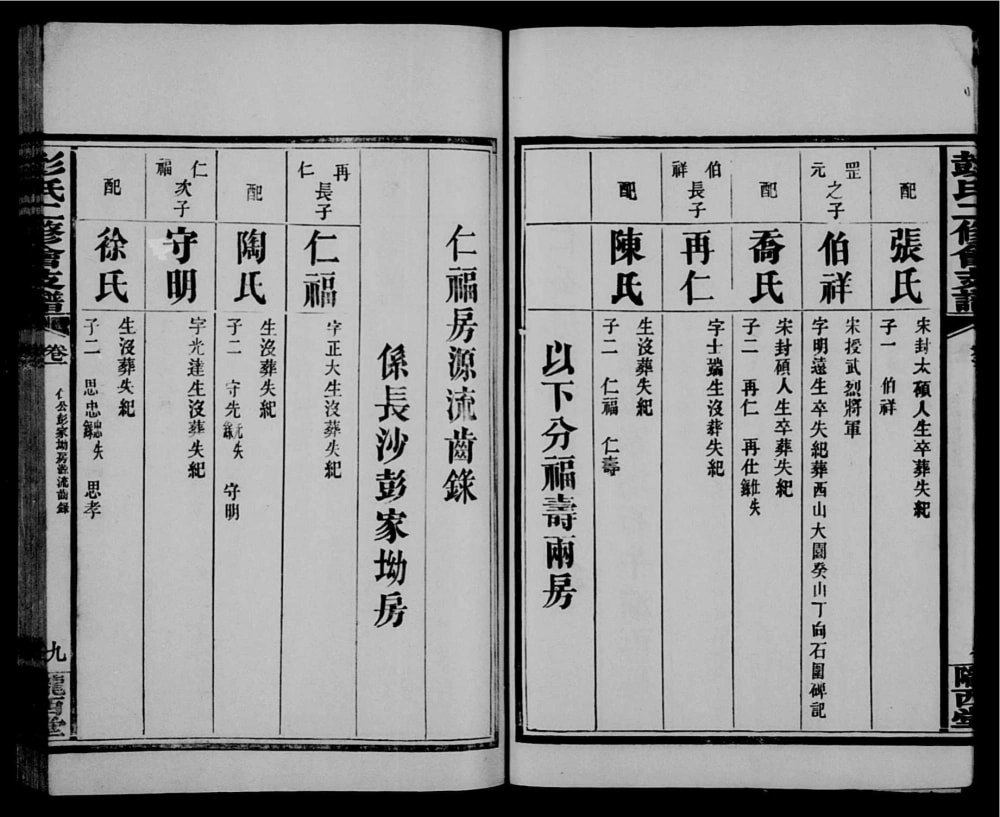 彭氏二修會支譜
隴西堂
配
張氏
宋封太碩人生卒葬失紀
子一　伯祥
罡元之子
伯祥
宋授武烈將軍
字明遠生卒失紀葬西山大園癸山丁向石圍碑記
配
喬氏
宋封碩人生卒葬失紀
子二　再仁　再仕
伯祥長子
再仁
字士瑞生沒葬失紀
配
陳氏
生沒葬失紀
子二　仁福　仁壽
以下分福壽兩房
仁福房源流齒錄
係長沙彭家坳房
再仁長子
仁福
字正大生沒葬失紀
配
陶氏
生沒葬失紀
子二　守先　守明
仁福次子
守明
字光達生沒葬失紀
配
徐氏
生沒葬失紀
子二　思忠　思孝
彭氏二修會支譜
卷一
仁公彭家坳房源流齒錄
九
隴西堂